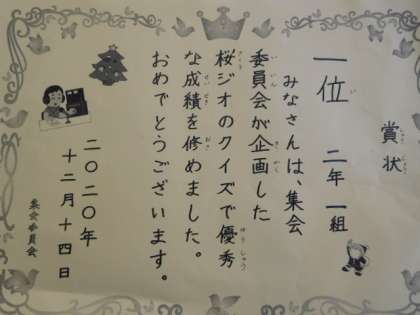 賞状
一位 二年一組
みなさんは、集会
委員会が企画した
桜ジオのクイズで優秀
な成績を修めました。
おめでとうございます。
二〇二〇年
十二月十四日
集会委員会